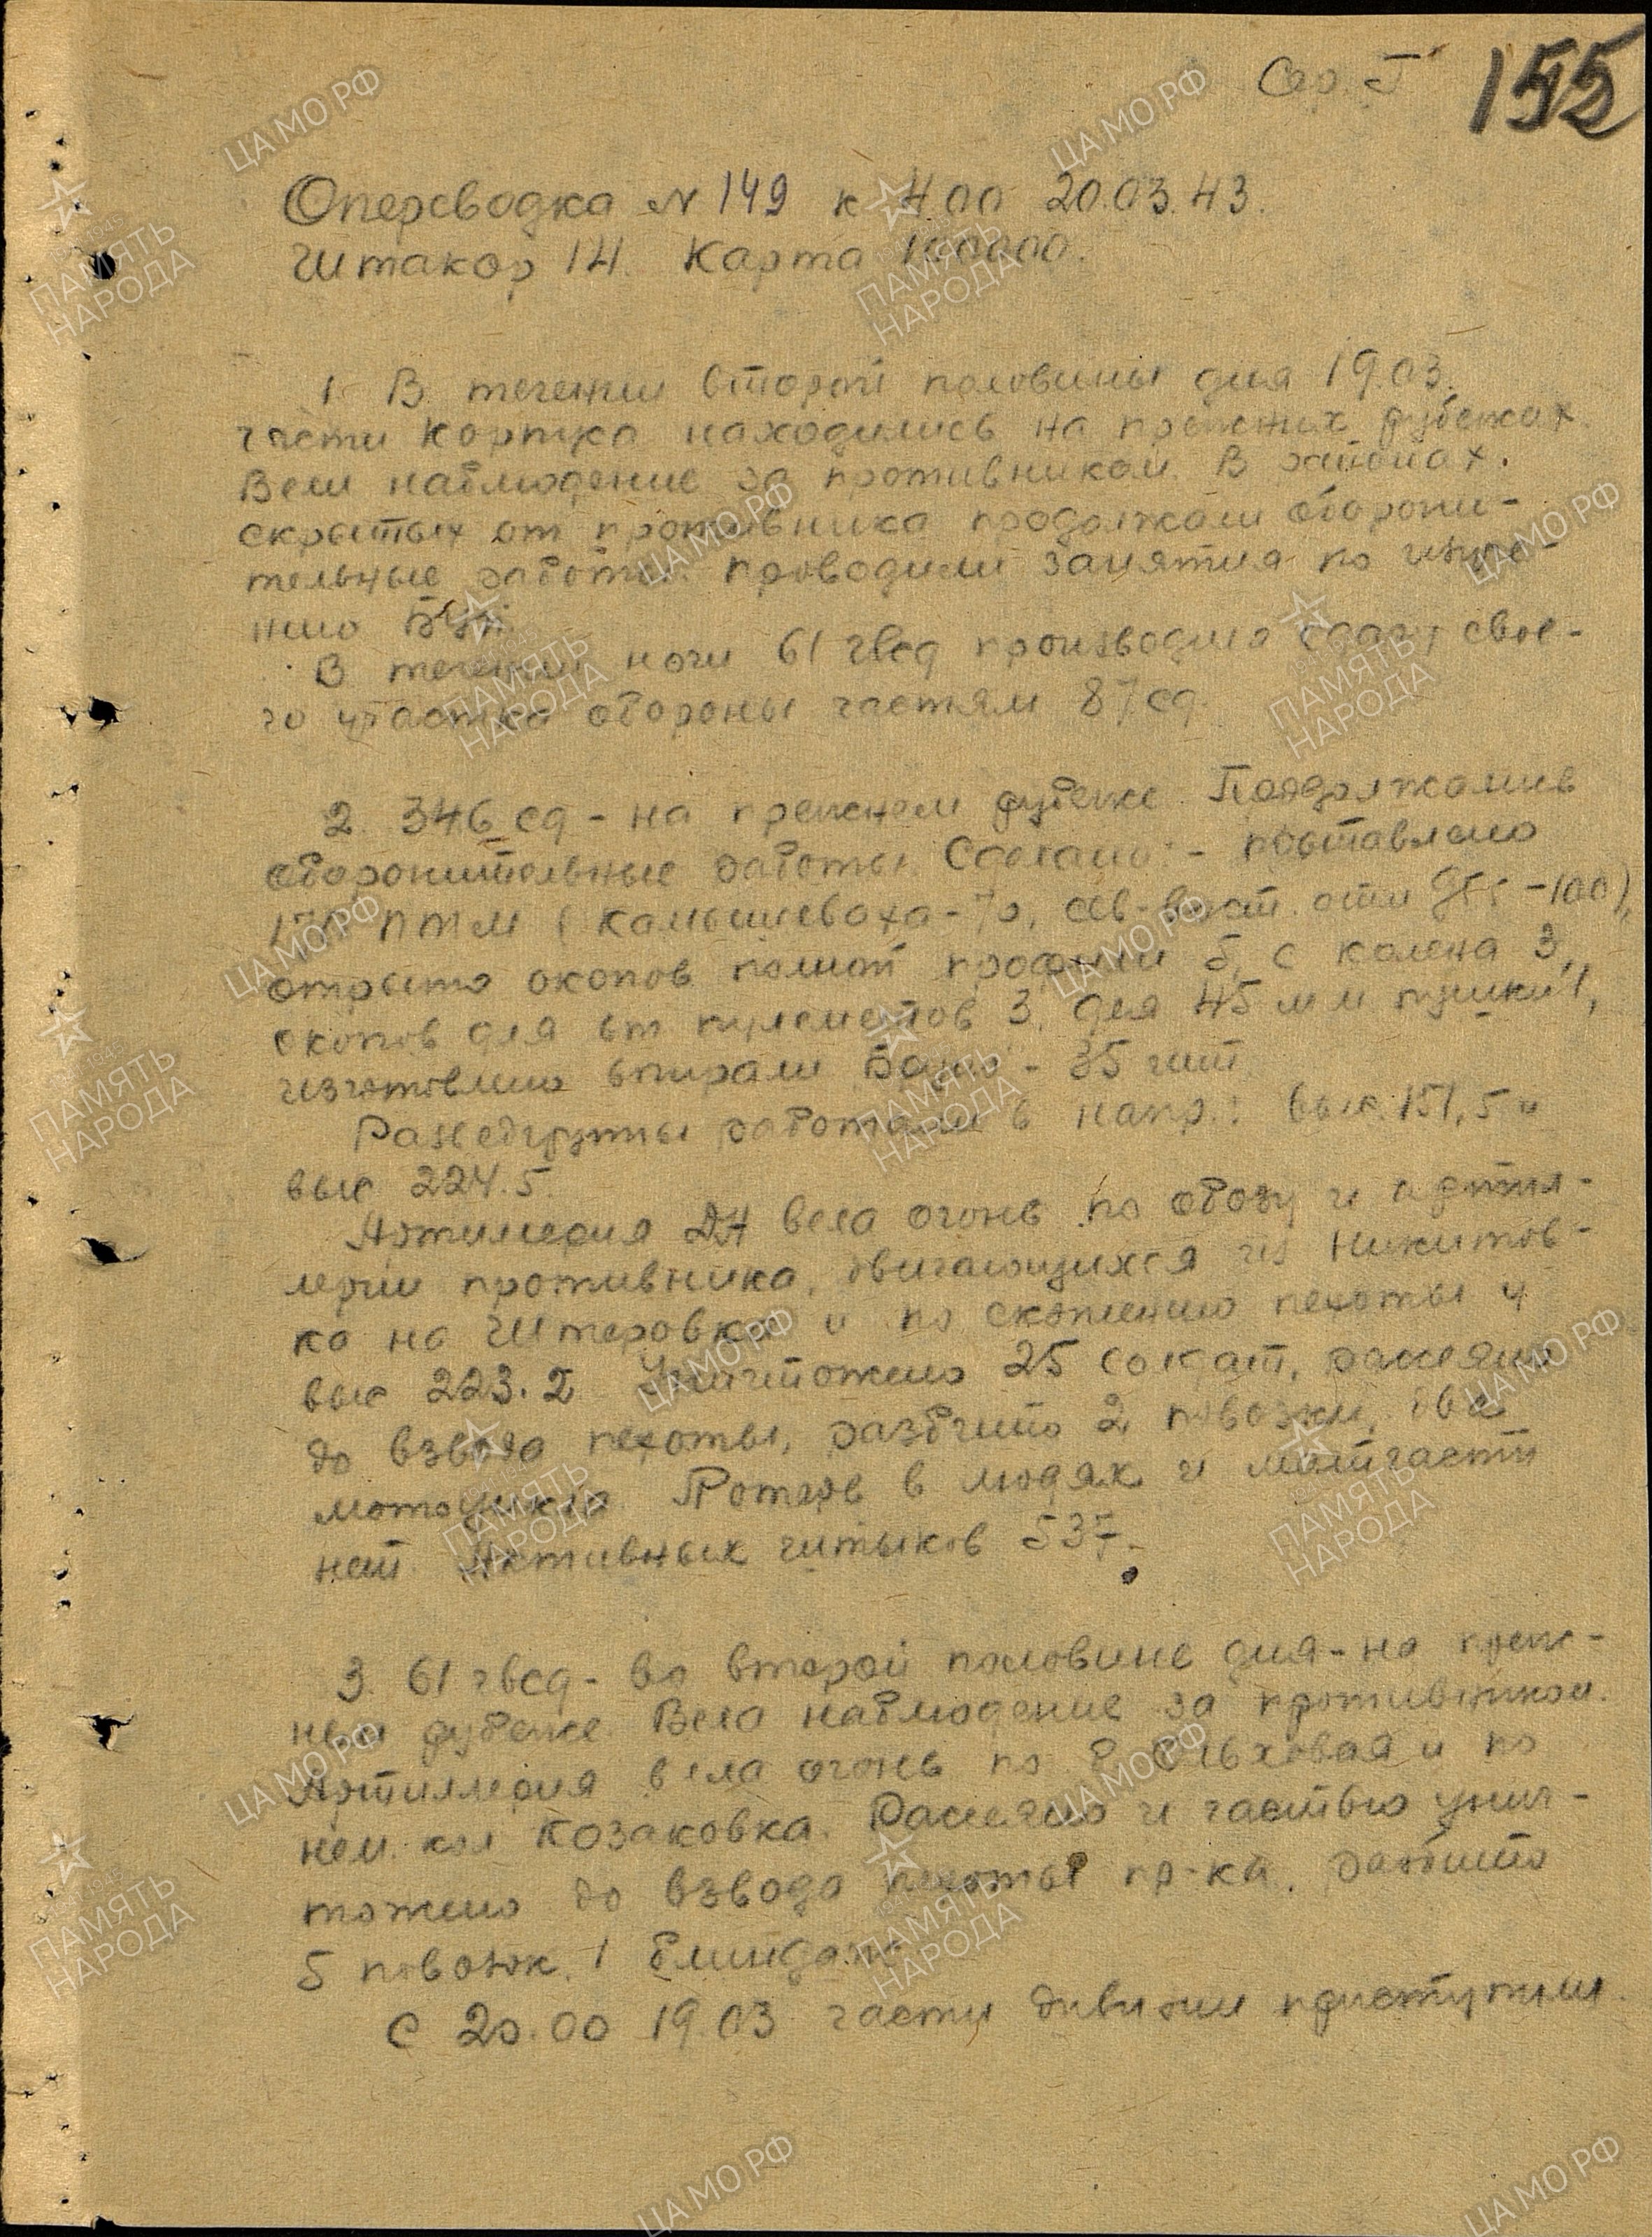 Сер. Г 155
Оперсводка № 149 к 4.00 20.03.43.
Штакор 14. Карта 100000.
1. В течении второй половины дня 19.03.
части корпуса находились на прежних рубежах.
Вели наблюдение за противником. В районах,
скрытых от противника продолжали оборони-
тельные работы, проводили занятия по изуче-
нию БУП.
В течении ночи 61 гвсд производила сдачу свое-
го участка обороны частям 87 сд.
2. 346 сд - на прежнем рубеже. Продолжались
оборонительные работы. Сделано: - поставлено
170 ПТМ (Камышеваха - 70, сев-вост. отм - 100),
отрыто окопов полной профили 5, с колена 3,
окопов для ст. пулеметов 3, для 45 мм пушки 1,
изготовлено спирали Бруно - 35 шт.
Разведгруппы работали в напр.: выс. 151,5 и
выс 224.5.
Артиллерия ДД вела огонь по обозу и артил-
лерии противника, двигающихся из Никитов-
ка на Штеровка и по скоплению пехоты у
выс 223.2. Уничтожено 25 солдат, рассеяно
до взвода пехоты, разбито 2 повозки, два
мотоцикла. Потерь в людях и матчасти
нет. Активных штыков 537.
3. 61 гвсд - во второй половине дня - на преж-
нем рубеже. Вела наблюдение за противником.
Артиллерия вела огонь по Ольховая и по
нем. кол Козаковка. Рассеяно и частью унич-
тожено до взвода пехоты пр-ка, разбито
5 повозок, 1 блиндаж.
С 20.00 19.03 части дивизии приступили
ЦАМО РФ
ПАМЯТЬ
НАРОДА